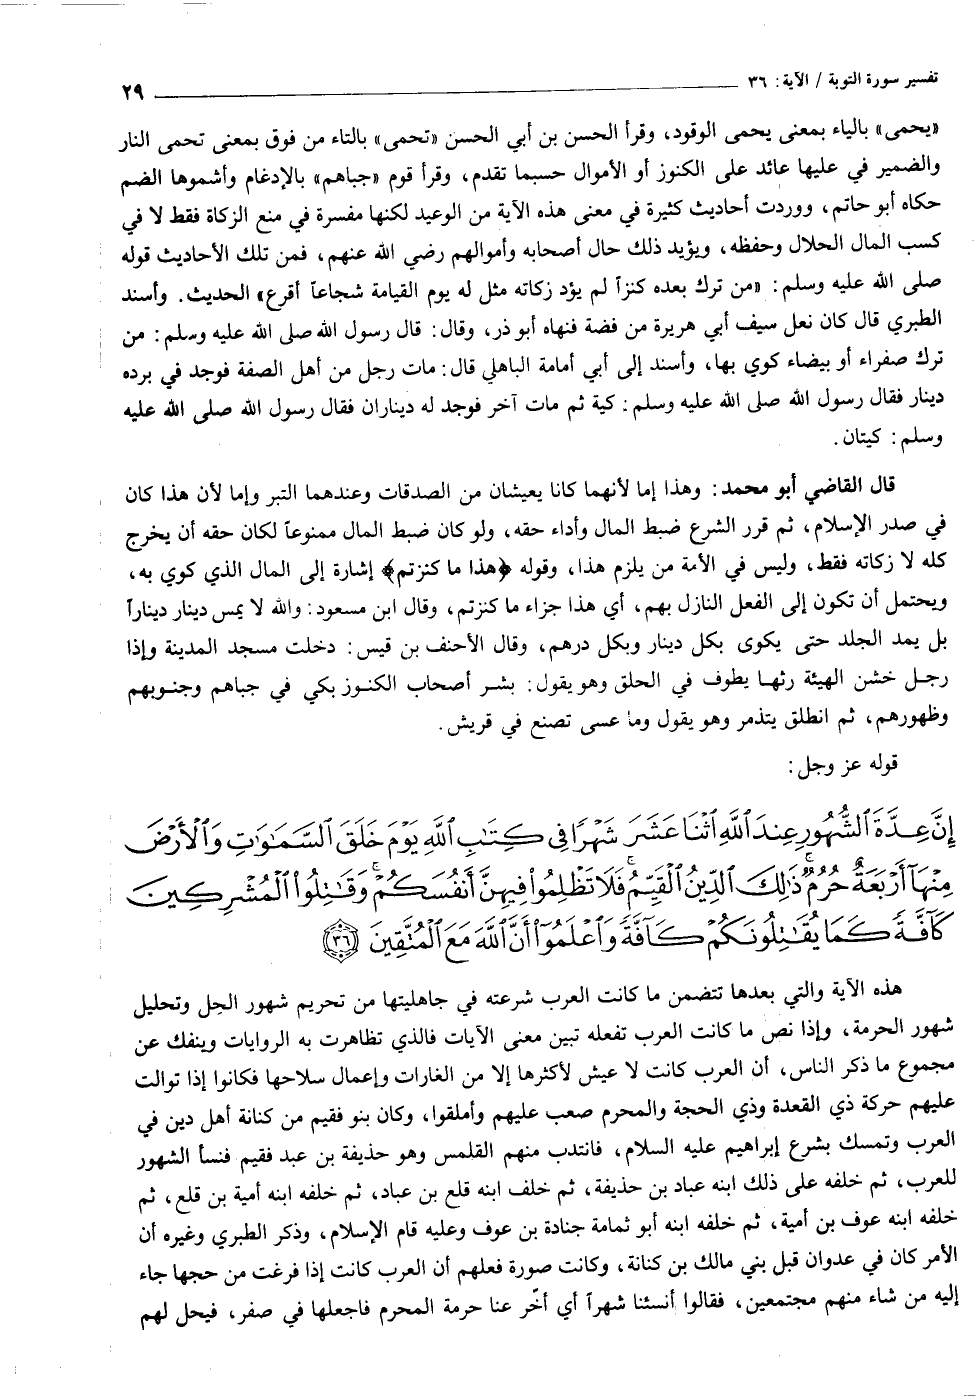 تفسير سورة التوبة / الآية: ٣٦ ٢٩
«يحمى» بالياء بمعنى يحمى الوقود، وقرأ الحسن بن أبي الحسن «تحمى» بالتاء من فوق بمعنى تحمى النار
والضمير في عليها عائد على الكنوز أو الأموال حسبما تقدم، وقرأ قوم «جباهم» بالإدغام وأشموها الضم
حكاه أبو حاتم، ووردت أحاديث كثيرة في معنى هذه الآية من الوعيد لكنها مفسرة في منع الزكاة فقط لا في
كسب المال الحلال وحفظه، ويؤيد ذلك حال أصحابه وأموالهم رضي الله عنهم، فمن تلك الأحاديث قوله
صلى الله عليه وسلم: «من ترك بعده كنزاً لم يؤد زكاته مثل له يوم القيامة شجاعاً أقرع» الحديث. وأسند
الطبري قال كان نعل سيف أبي هريرة من فضة فنهاه أبو ذر، وقال: قال رسول الله صلى الله عليه وسلم: من
ترك صفراء أو بيضاء كوي بها، وأسند إلى أبي أمامة الباهلي قال: مات رجل من أهل الصفة فوجد في برده
دينار فقال رسول الله صلى الله عليه وسلم: كية ثم مات آخر فوجد له ديناران فقال رسول الله صلى الله عليه
وسلم: كيتان.
قال القاضي أبو محمد: وهذا إما لأنهما كانا يعيشان من الصدقات وعندهما التبر وإما لأن هذا كان
في صدر الإسلام، ثم قرر الشرع ضبط المال وأداء حقه، ولو كان ضبط المال ممنوعاً لكان حقه أن يخرج
كله لا زكاته فقط، وليس في الأمة من يلزم هذا، وقوله ﴿هذا ما كنزتم﴾ إشارة إلى المال الذي كوي به،
ويحتمل أن تكون إلى الفعل النازل بهم، أي هذا جزاء ما كنزتم، وقال ابن مسعود: والله لا يمس دينار ديناراً
بل يمد الجلد حتى يكوى بكل دينار وبكل درهم، وقال الأحنف بن قيس: دخلت مسجد المدينة وإذا
رجل خشن الهيئة رثها يطوف في الحلق وهو يقول: بشر أصحاب الكنوز بكي في جباهم وجنوبهم
وظهورهم، ثم انطلق يتذمر وهو يقول وما عسى تصنع في قريش.
قوله عز وجل:
إِنَّ عِدَّةَ ٱلشُّهُورِ عِندَ ٱللَّهِ ٱثْنَا عَشَرَ شَهْرًا فِي كِتَٰبِ ٱللَّهِ يَوْمَ خَلَقَ ٱلسَّمَٰوَٰتِ وَٱلْأَرْضَ
مِنْهَآ أَرْبَعَةٌ حُرُمٌ ۚ ذَٰلِكَ ٱلدِّينُ ٱلْقَيِّمُ ۚ فَلَا تَظْلِمُوا۟ فِيهِنَّ أَنفُسَكُمْ ۚ وَقَٰتِلُوا۟ ٱلْمُشْرِكِينَ
كَآفَّةً كَمَا يُقَٰتِلُونَكُمْ كَآفَّةً ۚ وَٱعْلَمُوٓا۟ أَنَّ ٱللَّهَ مَعَ ٱلْمُتَّقِينَ ٣٦
هذه الآية والتي بعدها تتضمن ما كانت العرب شرعته في جاهليتها من تحريم شهور الحِل وتحليل
شهور الحرمة، وإذا نص ما كانت العرب تفعله تبين معنى الآيات فالذي تظاهرت به الروايات وينفك عن
مجموع ما ذكر الناس، أن العرب كانت لا عيش لأكثرها إلا من الغارات وإعمال سلاحها فكانوا إذا توالت
عليهم حركة ذي القعدة وذي الحجة والمحرم صعب عليهم وأملقوا، وكان بنو فقيم من كنانة أهل دين في
العرب وتمسك بشرع إبراهيم عليه السلام، فانتدب منهم القلمس وهو حذيفة بن عبد فقيم فنسأ الشهور
للعرب، ثم خلفه على ذلك ابنه عباد بن حذيفة، ثم خلف ابنه قلع بن عباد، ثم خلفه ابنه أمية بن قلع، ثم
خلفه ابنه عوف بن أمية، ثم خلفه ابنه أبو ثمامة جنادة بن عوف وعليه قام الإسلام، وذكر الطبري وغيره أن
الأمر كان في عدوان قبل بني مالك بن كنانة، وكانت صورة فعلهم أن العرب كانت إذا فرغت من حجها جاء
إليه من شاء منهم مجتمعين، فقالوا أنسئنا شهراً أي أخّر عنا حرمة المحرم فاجعلها في صفر، فيحل لهم